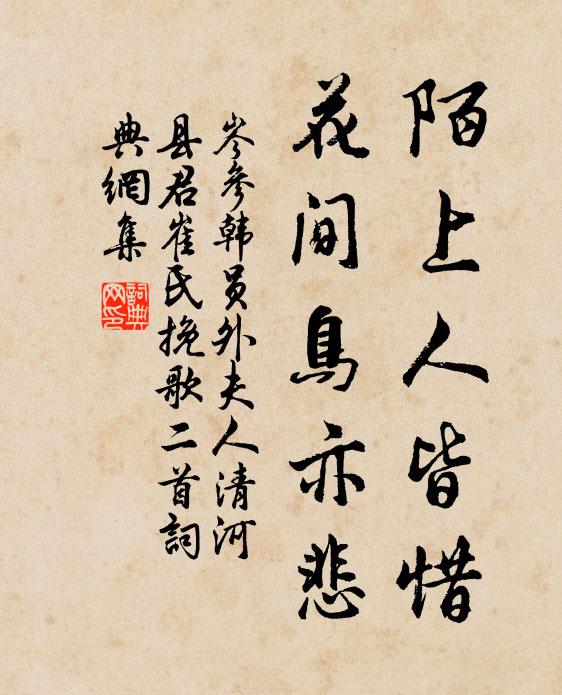 陌上人皆惜
花间鳥亦悲
岑參韩员外夫人清河
县君崔氏挽歌二首詞
典網集
詞典
网印